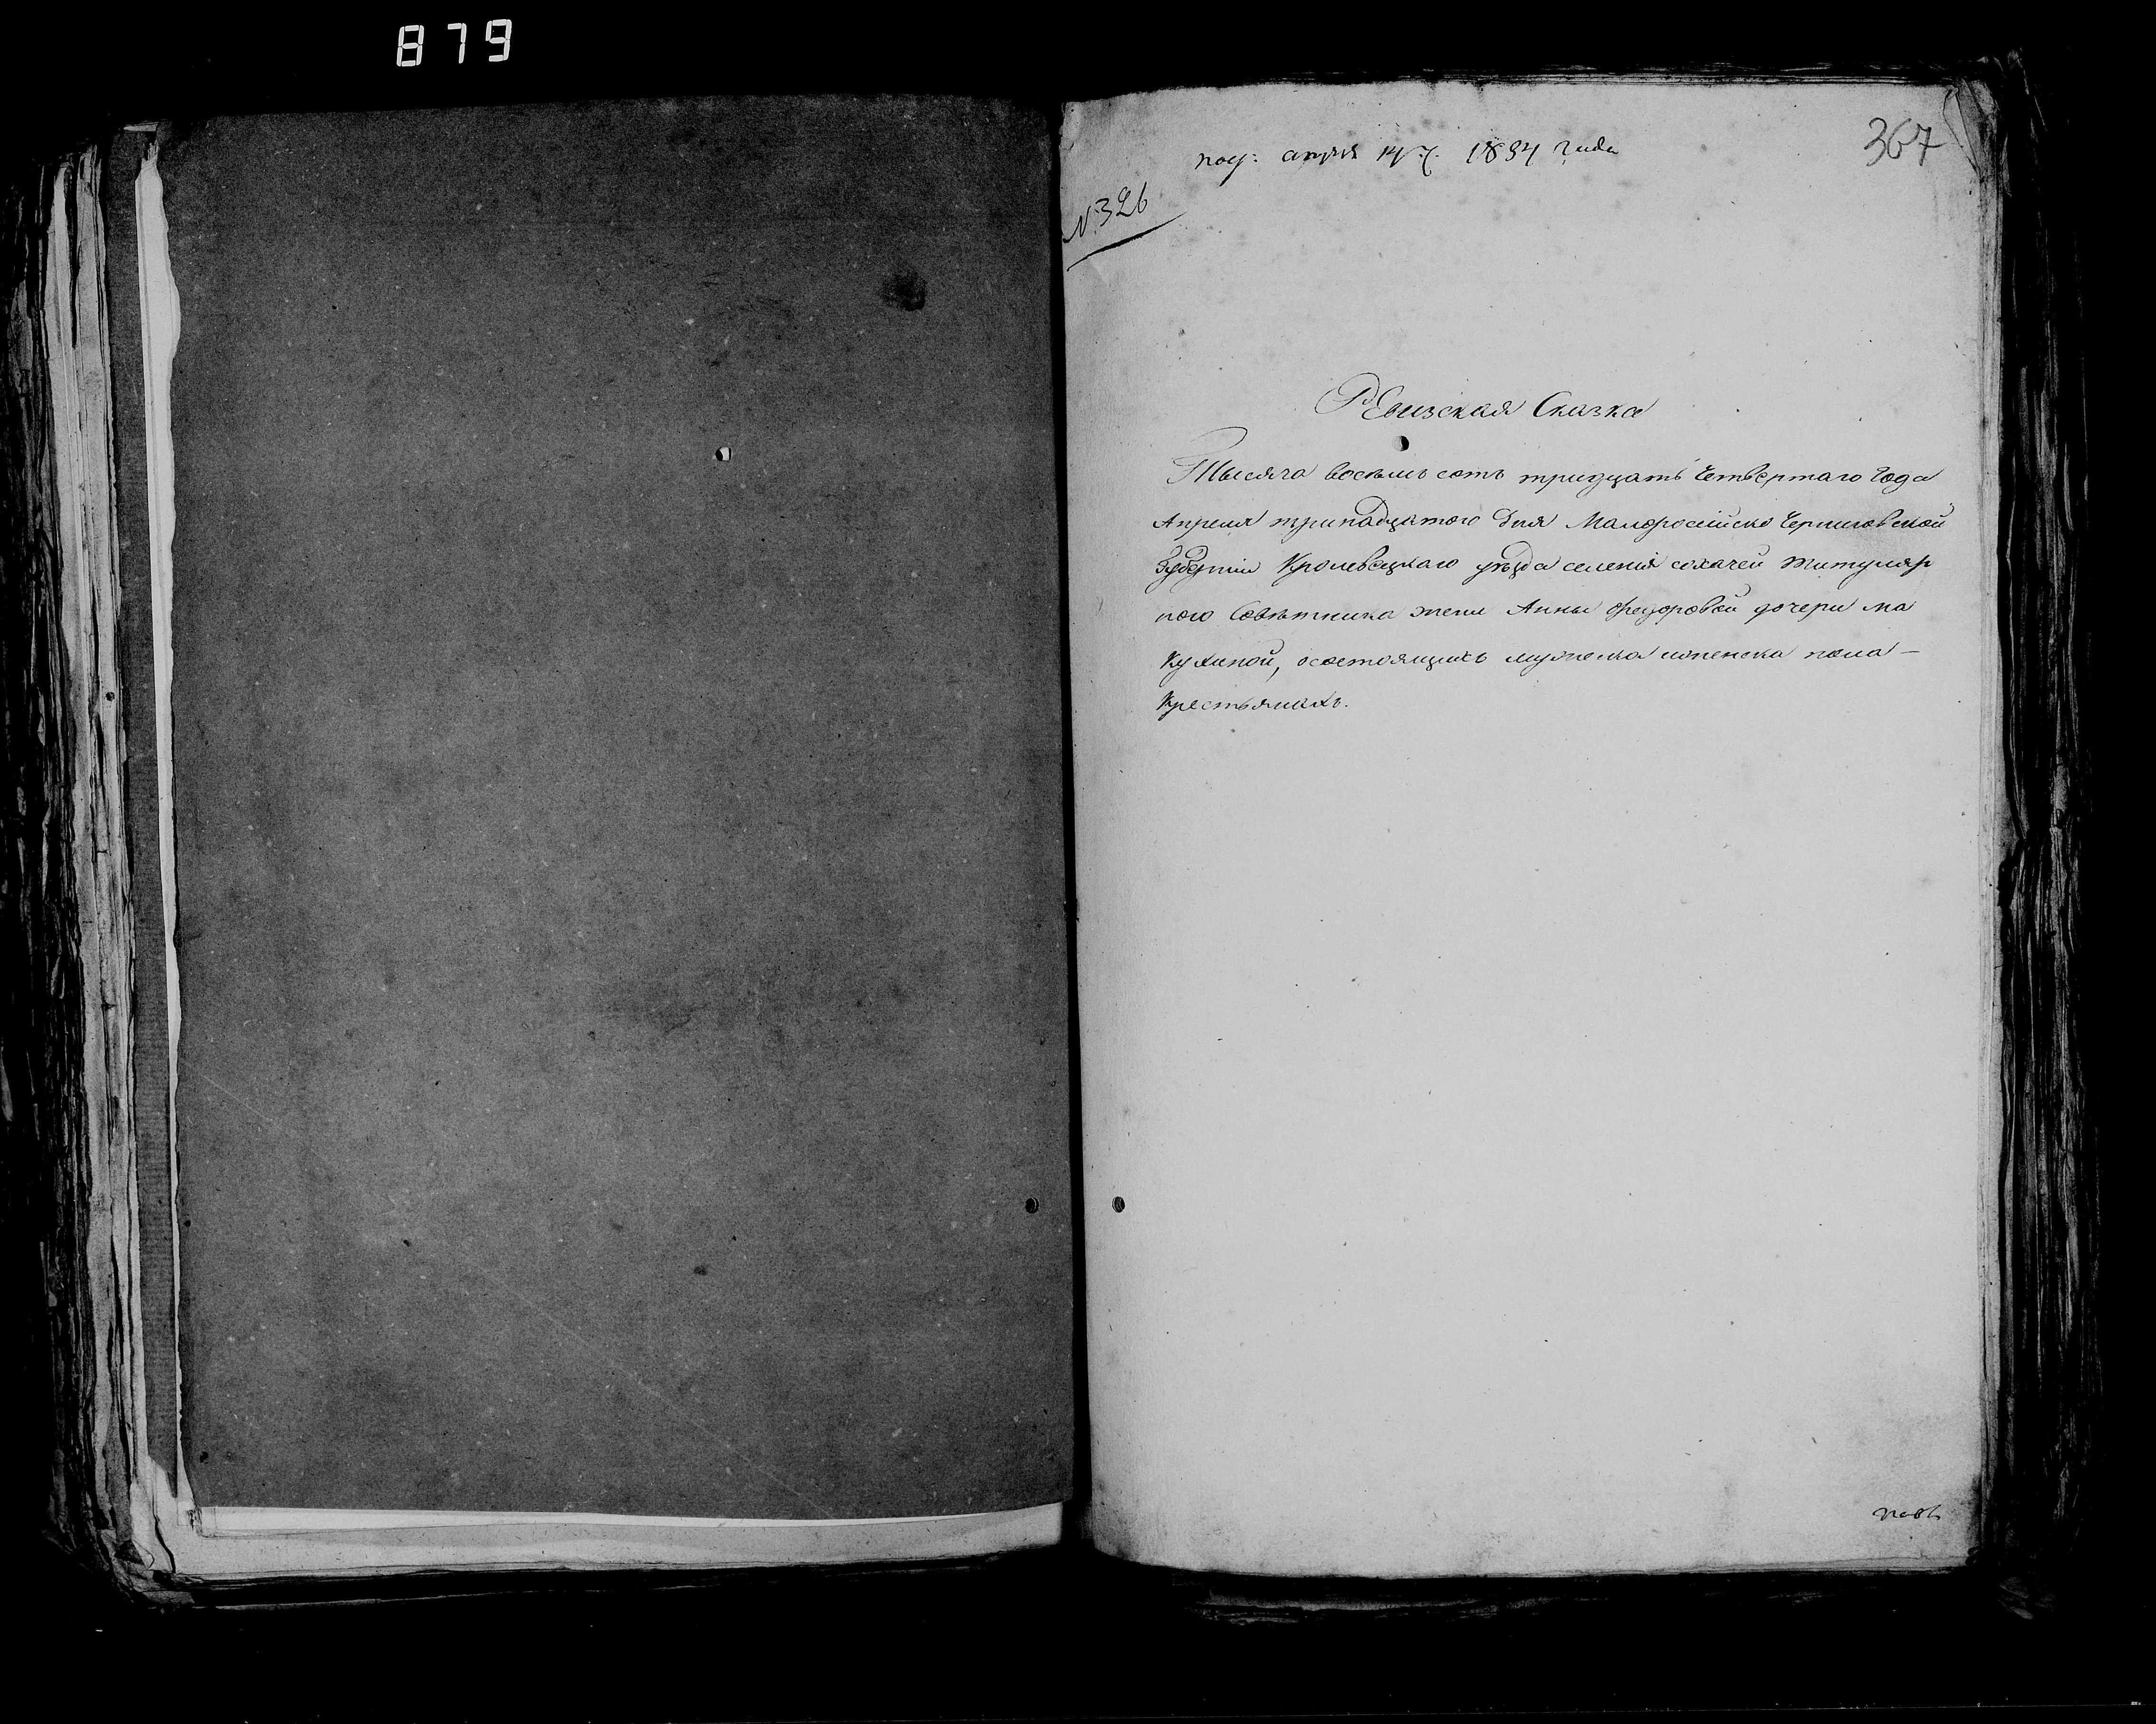 879
367
апреля 14 ч. 1834 года
№ 326
Ревизская Сказка
Тысяча восемь сотъ тридцать четвертаго года
Апреля тринадцатого дня Малоросійско Черниговской
Губерніи Кролевецкаго уѣзда селенія сохачей титуляр
ного Совѣтника жены Анны Федоровой дочери ма
кухиной, осостоящихъ мужеска иженска пола –
крестьянахъ.